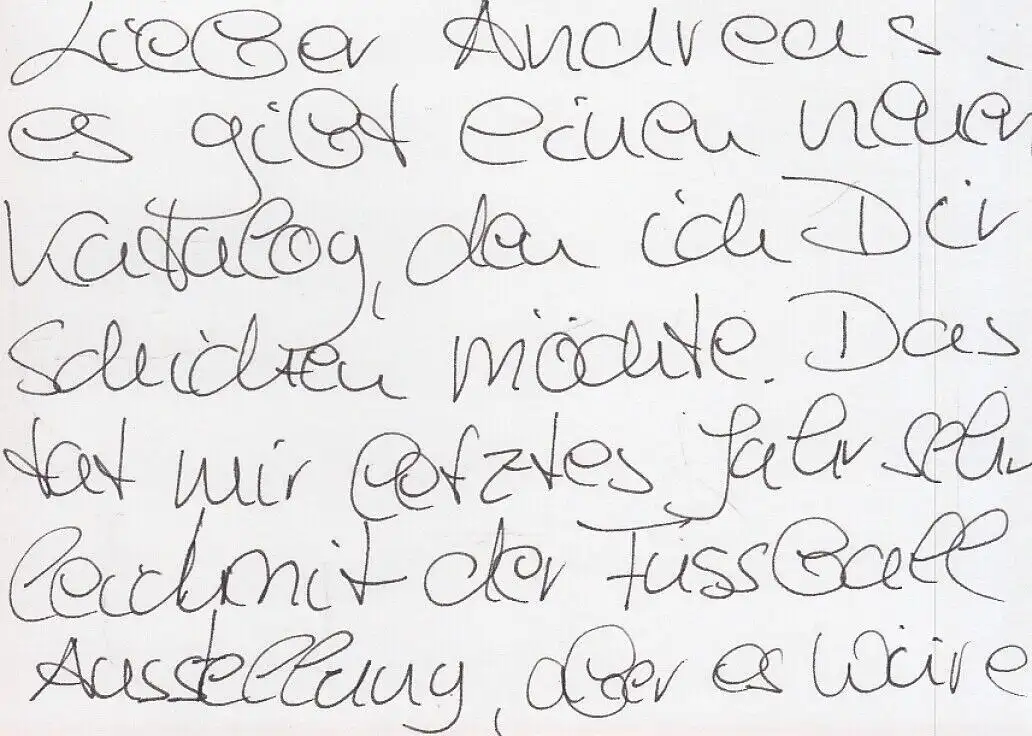 Lieber Andreas,
es gibt einen neuen
Katalog, den ich Dir
schicken möchte. Das
tat mir letztes Jahr sehr
leid mit der Fussball
Ausstellung, aber es wäre